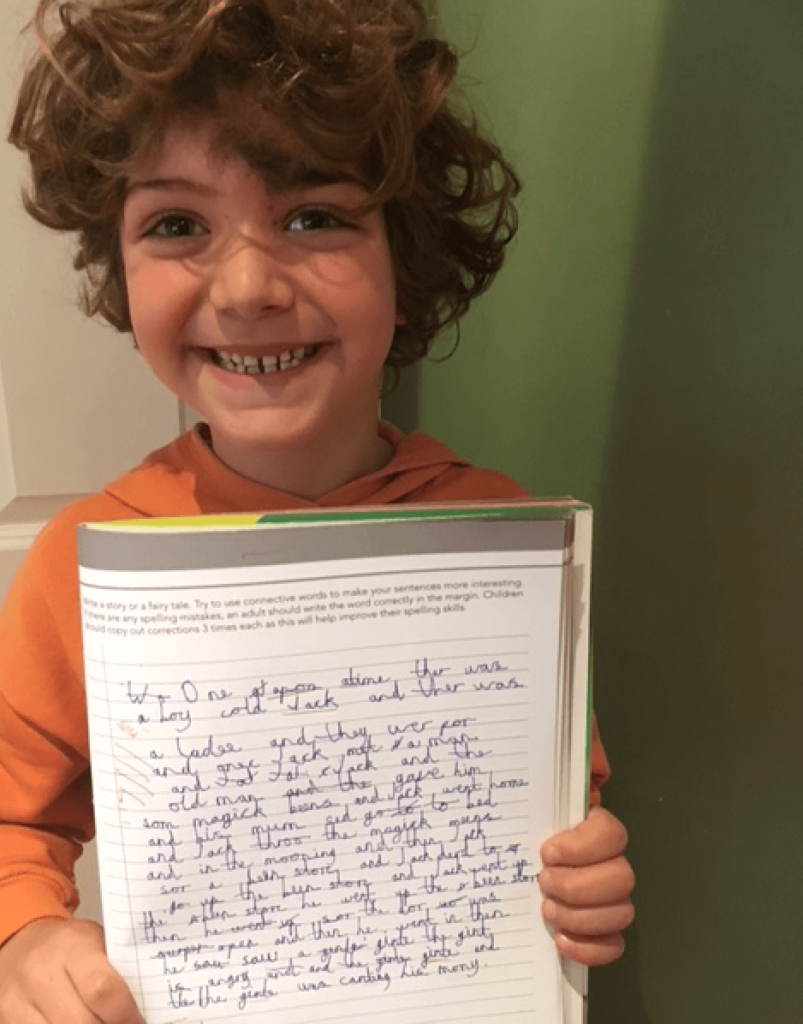 Write a story or a fairy tale. Try to use connective words to make your sentences more interesting.
If there are any spelling mistakes, an adult should write the word correctly in the margin. Children
should copy out corrections 3 times each as this will help improve their spelling skills.
One apon atime ther was
a boy cold Jack and ther was
a ladee and they wer por
and Jack met a man
and Jack and the
old man and the gave him
som magick beens and Jack went home
and his mum sed go to to bed
and Jack throo the magick
and in the morning and then Jack
sor a been and Jack to
go up the been and Jack went up
the he went up the been
then he went up sor the dor was
open and then he went in then
he saw saw a ginte the
is angry and and the ginte and
the the ginte was his mony.